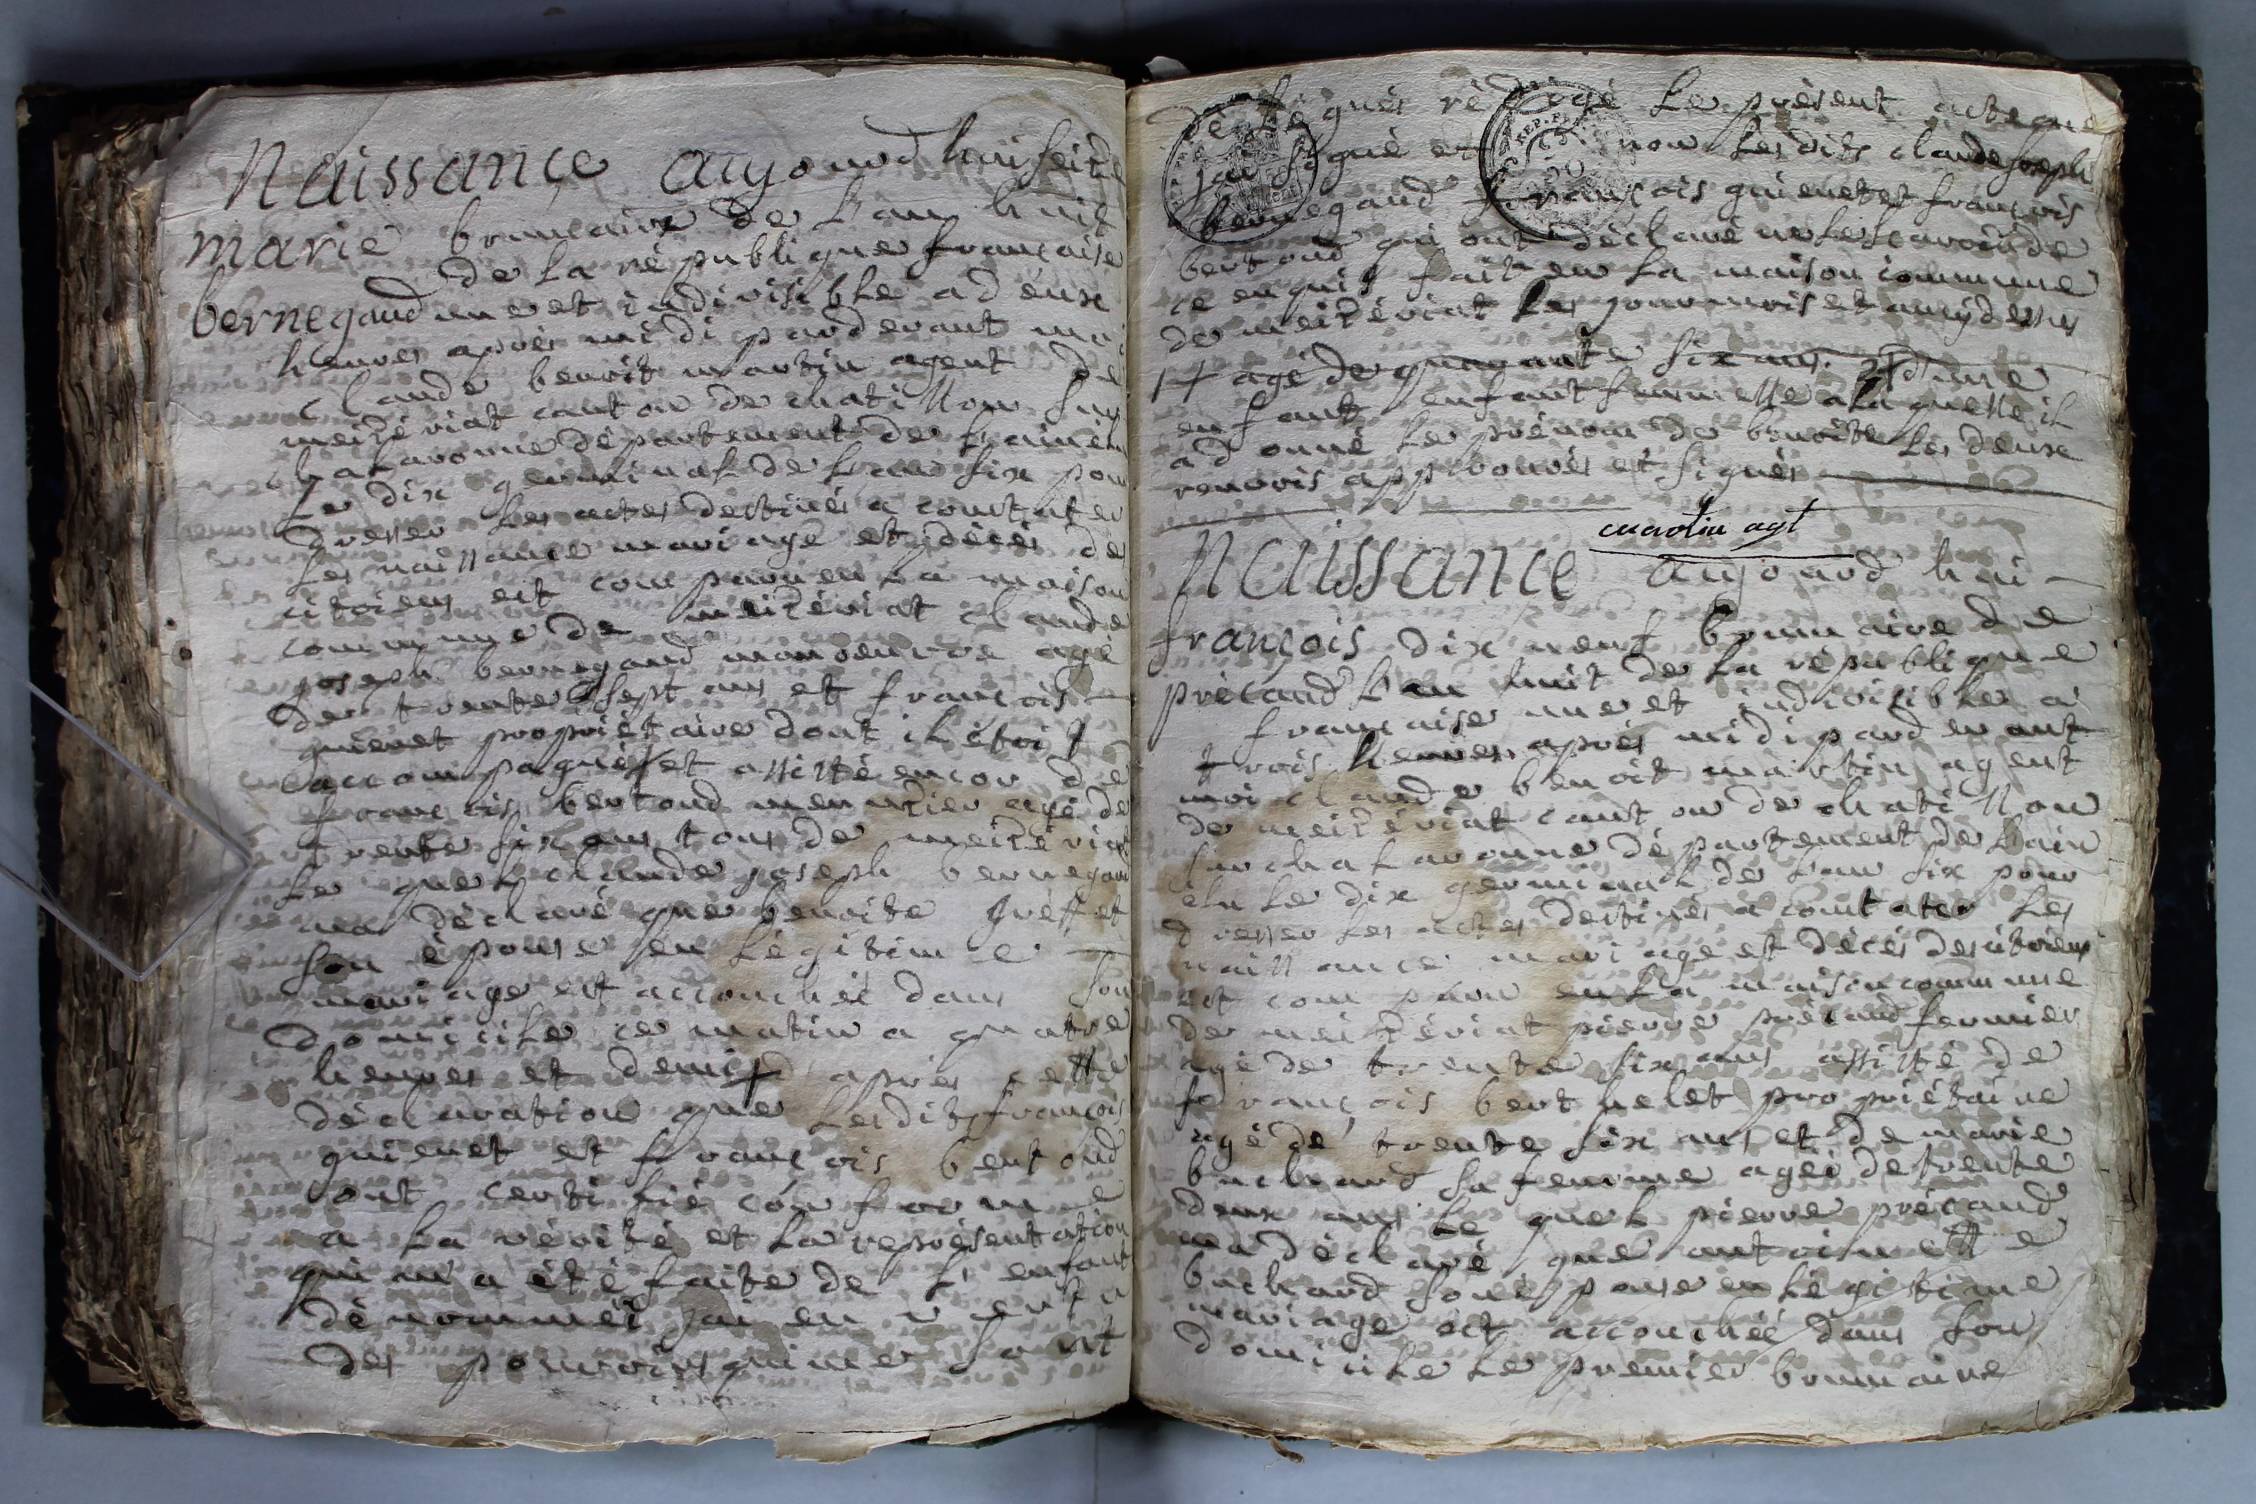 Naissance aujourd huy seize
marie brumaire de Lan huit
de la république francaise
bernegaud une et indivisible a deux
heures après midi pardevant moi
claude benoit martin agent de
meizériat canton de chatillon sur
chalaronne département de Lain élu
Le dix germinal de Lan six pour
dresser Les actes destinés a constater
Les naissance mariage et décés des
citoiens est comparu en la maison
commune de meizériat claude
joseph bernegaud manoeuvre agé
de trente sept ans et françois
guienet propriétaire dont il étoit
accompagné et assisté encor de
françois bertoud menuzier agé de
trente six ans tous de meizériat
Le quel claude joseph bernegaud
ma déclaré que benoite
son épouse en Légitime
mariage est accouchée dans son
domicile ce matin a quatre
heures et demi d'apres cette
déclaration que Lesdits françois
guienet et françois bertoud
ont certifié conforme
a La vérité et La représentation
qui m'a été faite de L'enfant
dénommée jai en vertu
des pouvoirs qui me sont
délégués rédigé Le présent acte que
jai signé et non Lesdits claude joseph
bernegaud françois guienet et françois
bertoud qui ont déclaré ne Le scavoir de
ce enquis fait en La maison commune
de meizériat Les jour mois et an cy dessus
1 + agé de quarante six ans. 2 + d'une
enfant enfant femmelle a La quelle il
a donné Le prénom de benoite Les deux
renvois approuvés et signés
martin agt
Naissance aujourd hui
françois dix neuf brumaire de
précaud Lan huit de La république
française une et indivisible a
trois heures après midi pardevant
moi claude benoit martin agent
de meizériat canton de chatillon
sur chalaronne département de Lain
élu Le dix germinal de Lan six pour
dresser Les actes destinés a constater Les
naissance mariage et décés des citoiens
est comparu en La maison commune
de meizériat pierre précaud fermier
agé de trente six ans assisté de
françois berthelet propriétaire
agé de trente six ans et de marie
buchard sa femme agée de trente
deux ans Le quel pierre précaud
ma déclaré que antoinette
buchard son épouse en Légitime
mariage est accouchée dans son
domicile Le premier brumaire